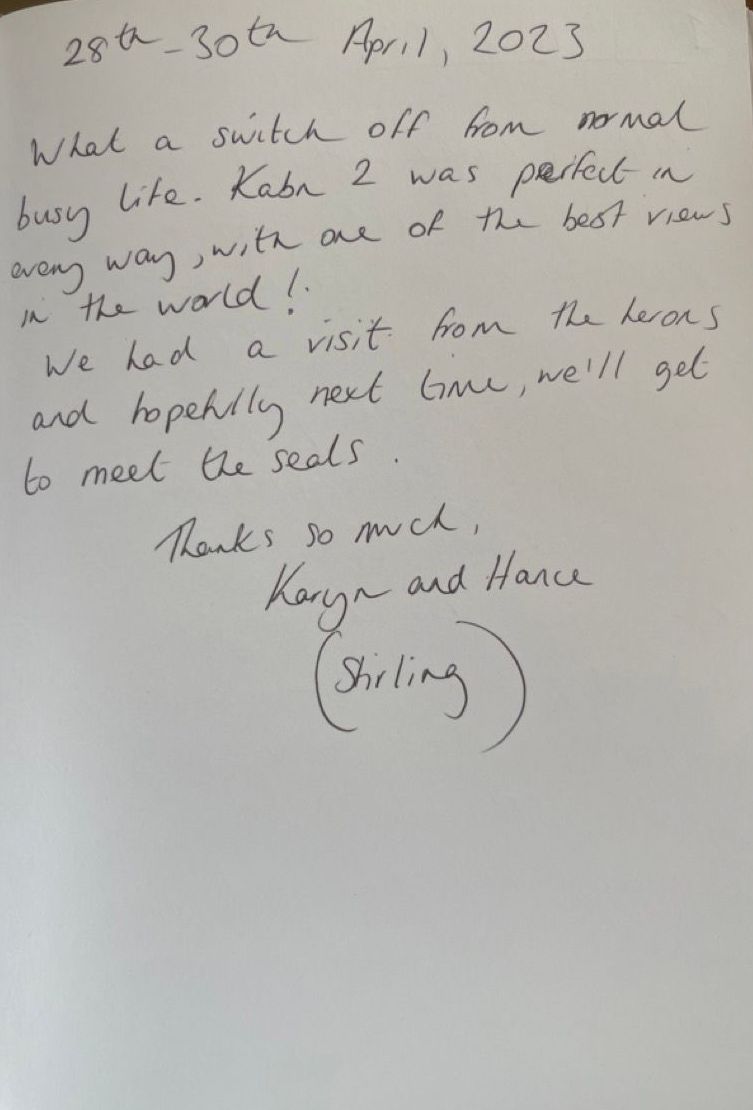 28th - 30th April, 2023
What a switch off from normal
busy life. Kabn 2 was perfect in
every way, with one of the best views
in the world!
We had a visit from the herons
and hopefully next time, we'll get
to meet the seals.
Thanks so much,
Karyn and Hance
(Stirling)